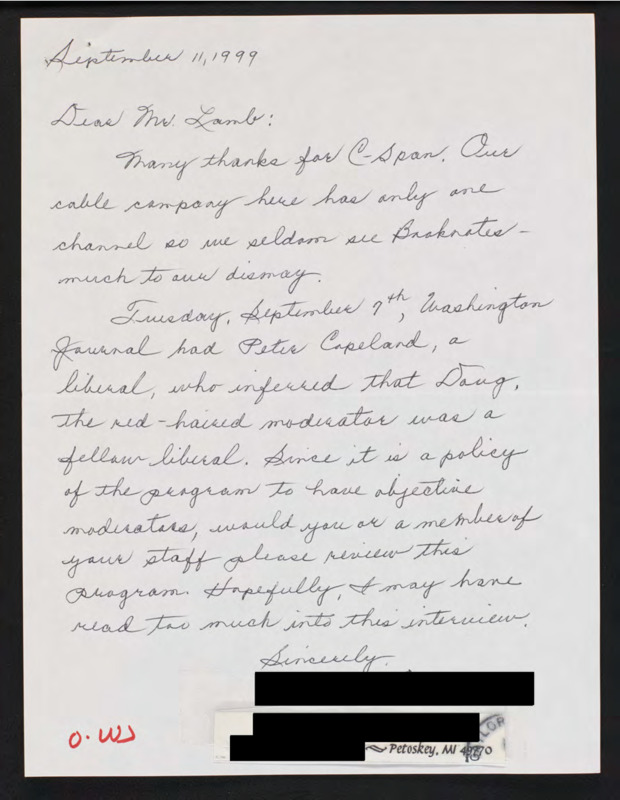 September 11, 1999
Dear Mr. Lamb:
Many thanks for C-Span. Our
cable company here has only one
channel so we seldom see Booknotes -
much to our dismay.
Tuesday, September 7th, Washington
Journal had Peter Copeland, a
liberal, who inferred that Doug,
the red-haired moderator was a
fellow liberal. Since it is a policy
of the program to have objective
moderators, would you or a member of
your staff please review this
program. Hopefully, I may have
read too much into this interview.
Sincerely,
Petoskey, MI 49770
O. WJ